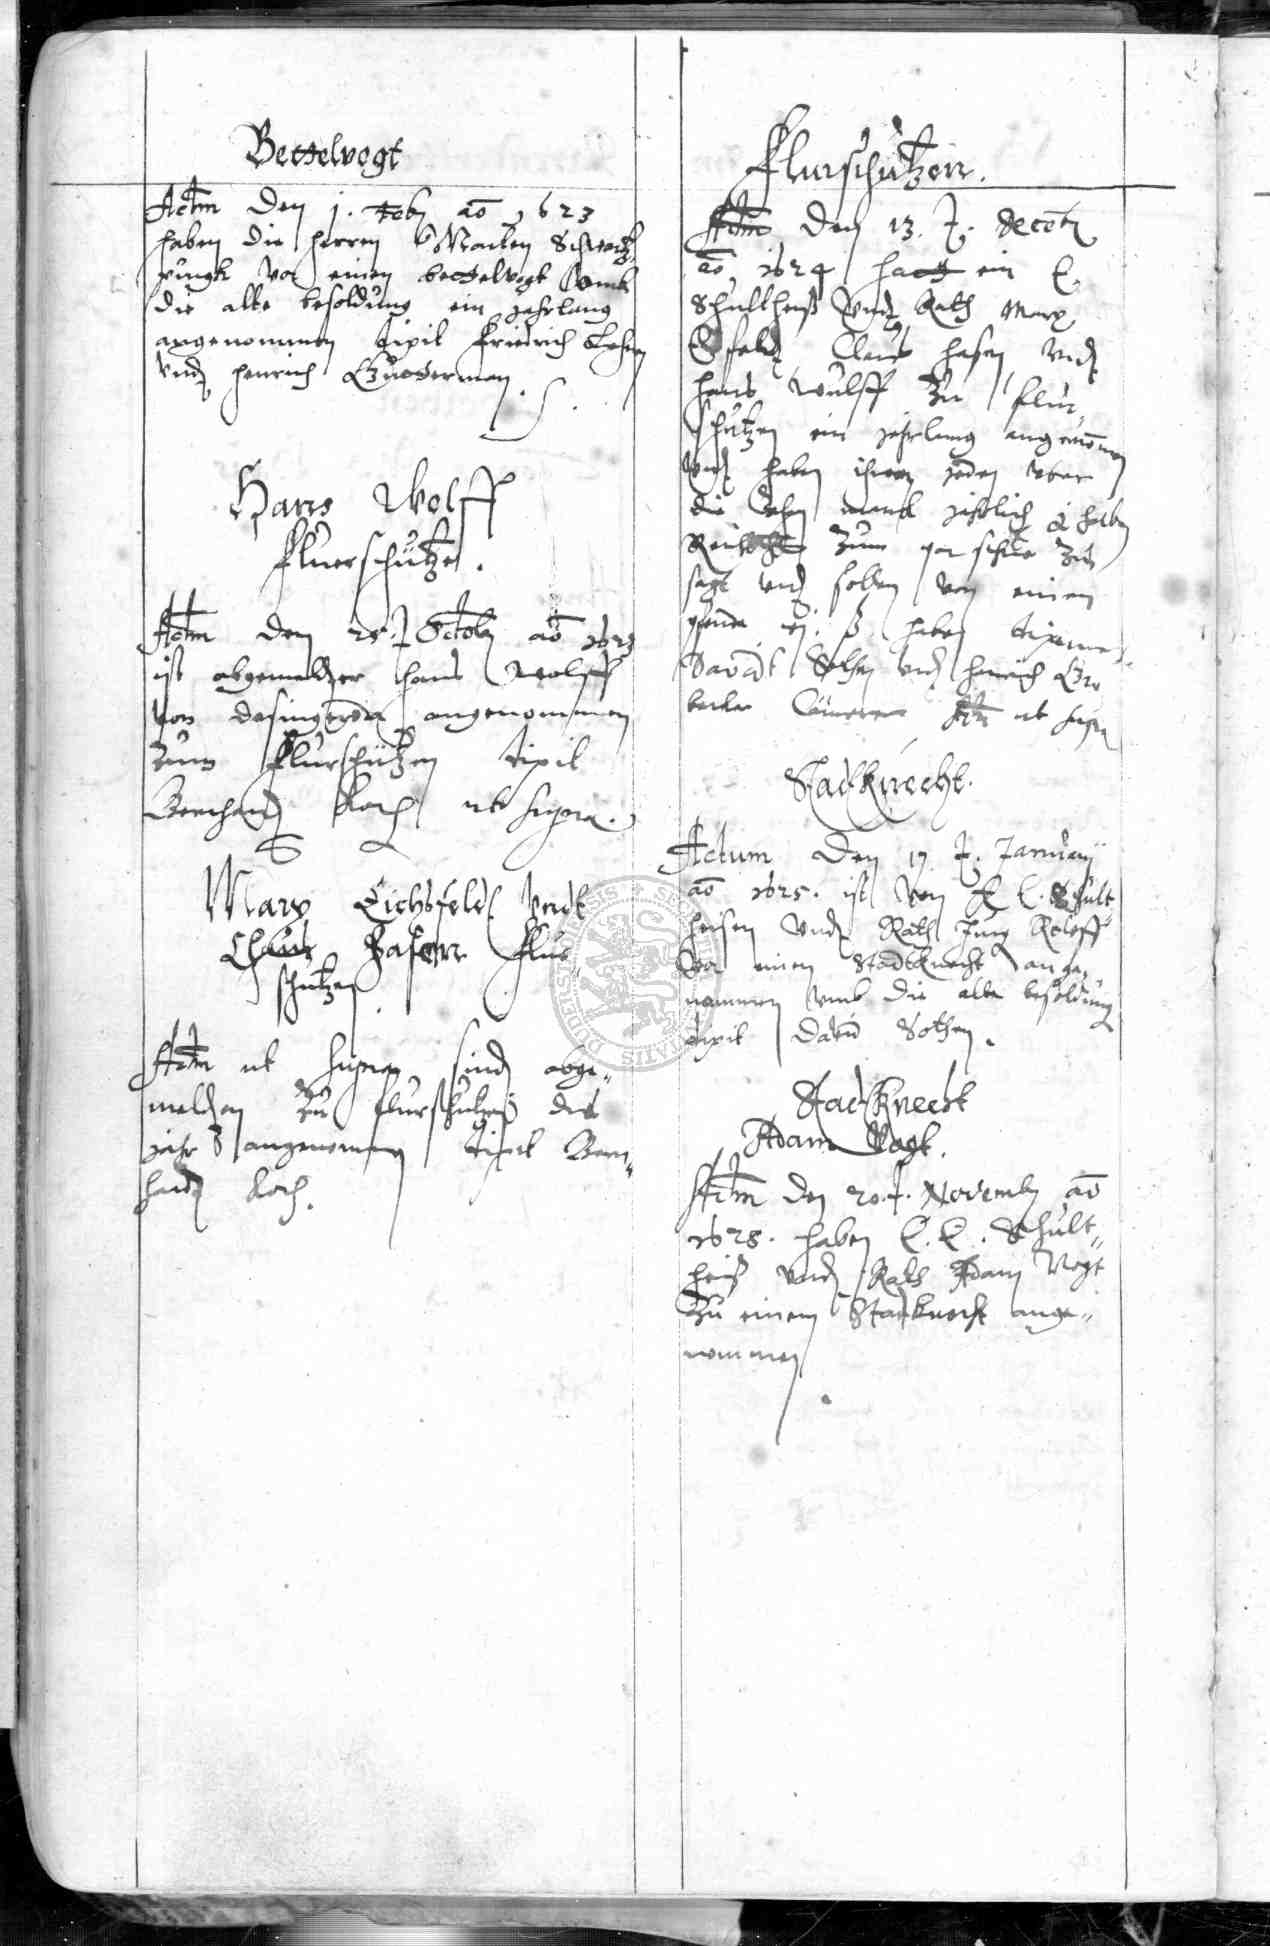 Bettelvogt
Actum den 1. Feb. ao 1623
haben die herren Marten Schwartz
vor einen bettelvogt vmb
die alte besoldung ein jahrlang
angenommen dixit Friedrich
vnd henrich
Hans Wolff
Fluerschütze.
Actum den 28. Octob ao 1623
ist abgemelter Hans Wolff
von desingeroda angenommen
zum Flurschützen dixit
Bernhard Koch ut supra.
Marx Eichsfeldt vndt
Claus Hasenn Flur
schützen.
Actum ut supra sind abge-
melten zu flurschützen dis
jahr angenommen dixit Bern-
hard Koch.
Flurschützenn.
Actum den 13. Decemb
ao 1624 hatt ein E.
Schultheiß vnd Rath Marx
Claus hasen vnd
hans Wulff zu flur-
schützen ein jahrlang angenommen
vnd haben ihnen jeden vber
die jahrlich
zum par schue zu
sagt vnd sollen von einem
haben dixerunt
Davidt Sothen vnd henrich
Cämerer Actum ut supra
Stadtknecht.
Actum den 17. Januarij
ao 1625. ist von E. E. Schult
heisen vnd Rath Jurg Roloff
vor einen Stadtknecht ange-
nommen vmb die alte besoldung
dixit David Sothen.
Stadtknecht
Adam Vogt.
Actum den 20. Novemb ao
1628. haben E. E. Schult-
heiß vnd Rath Adam Vogt
zu einem Stadtknecht ange-
nommen